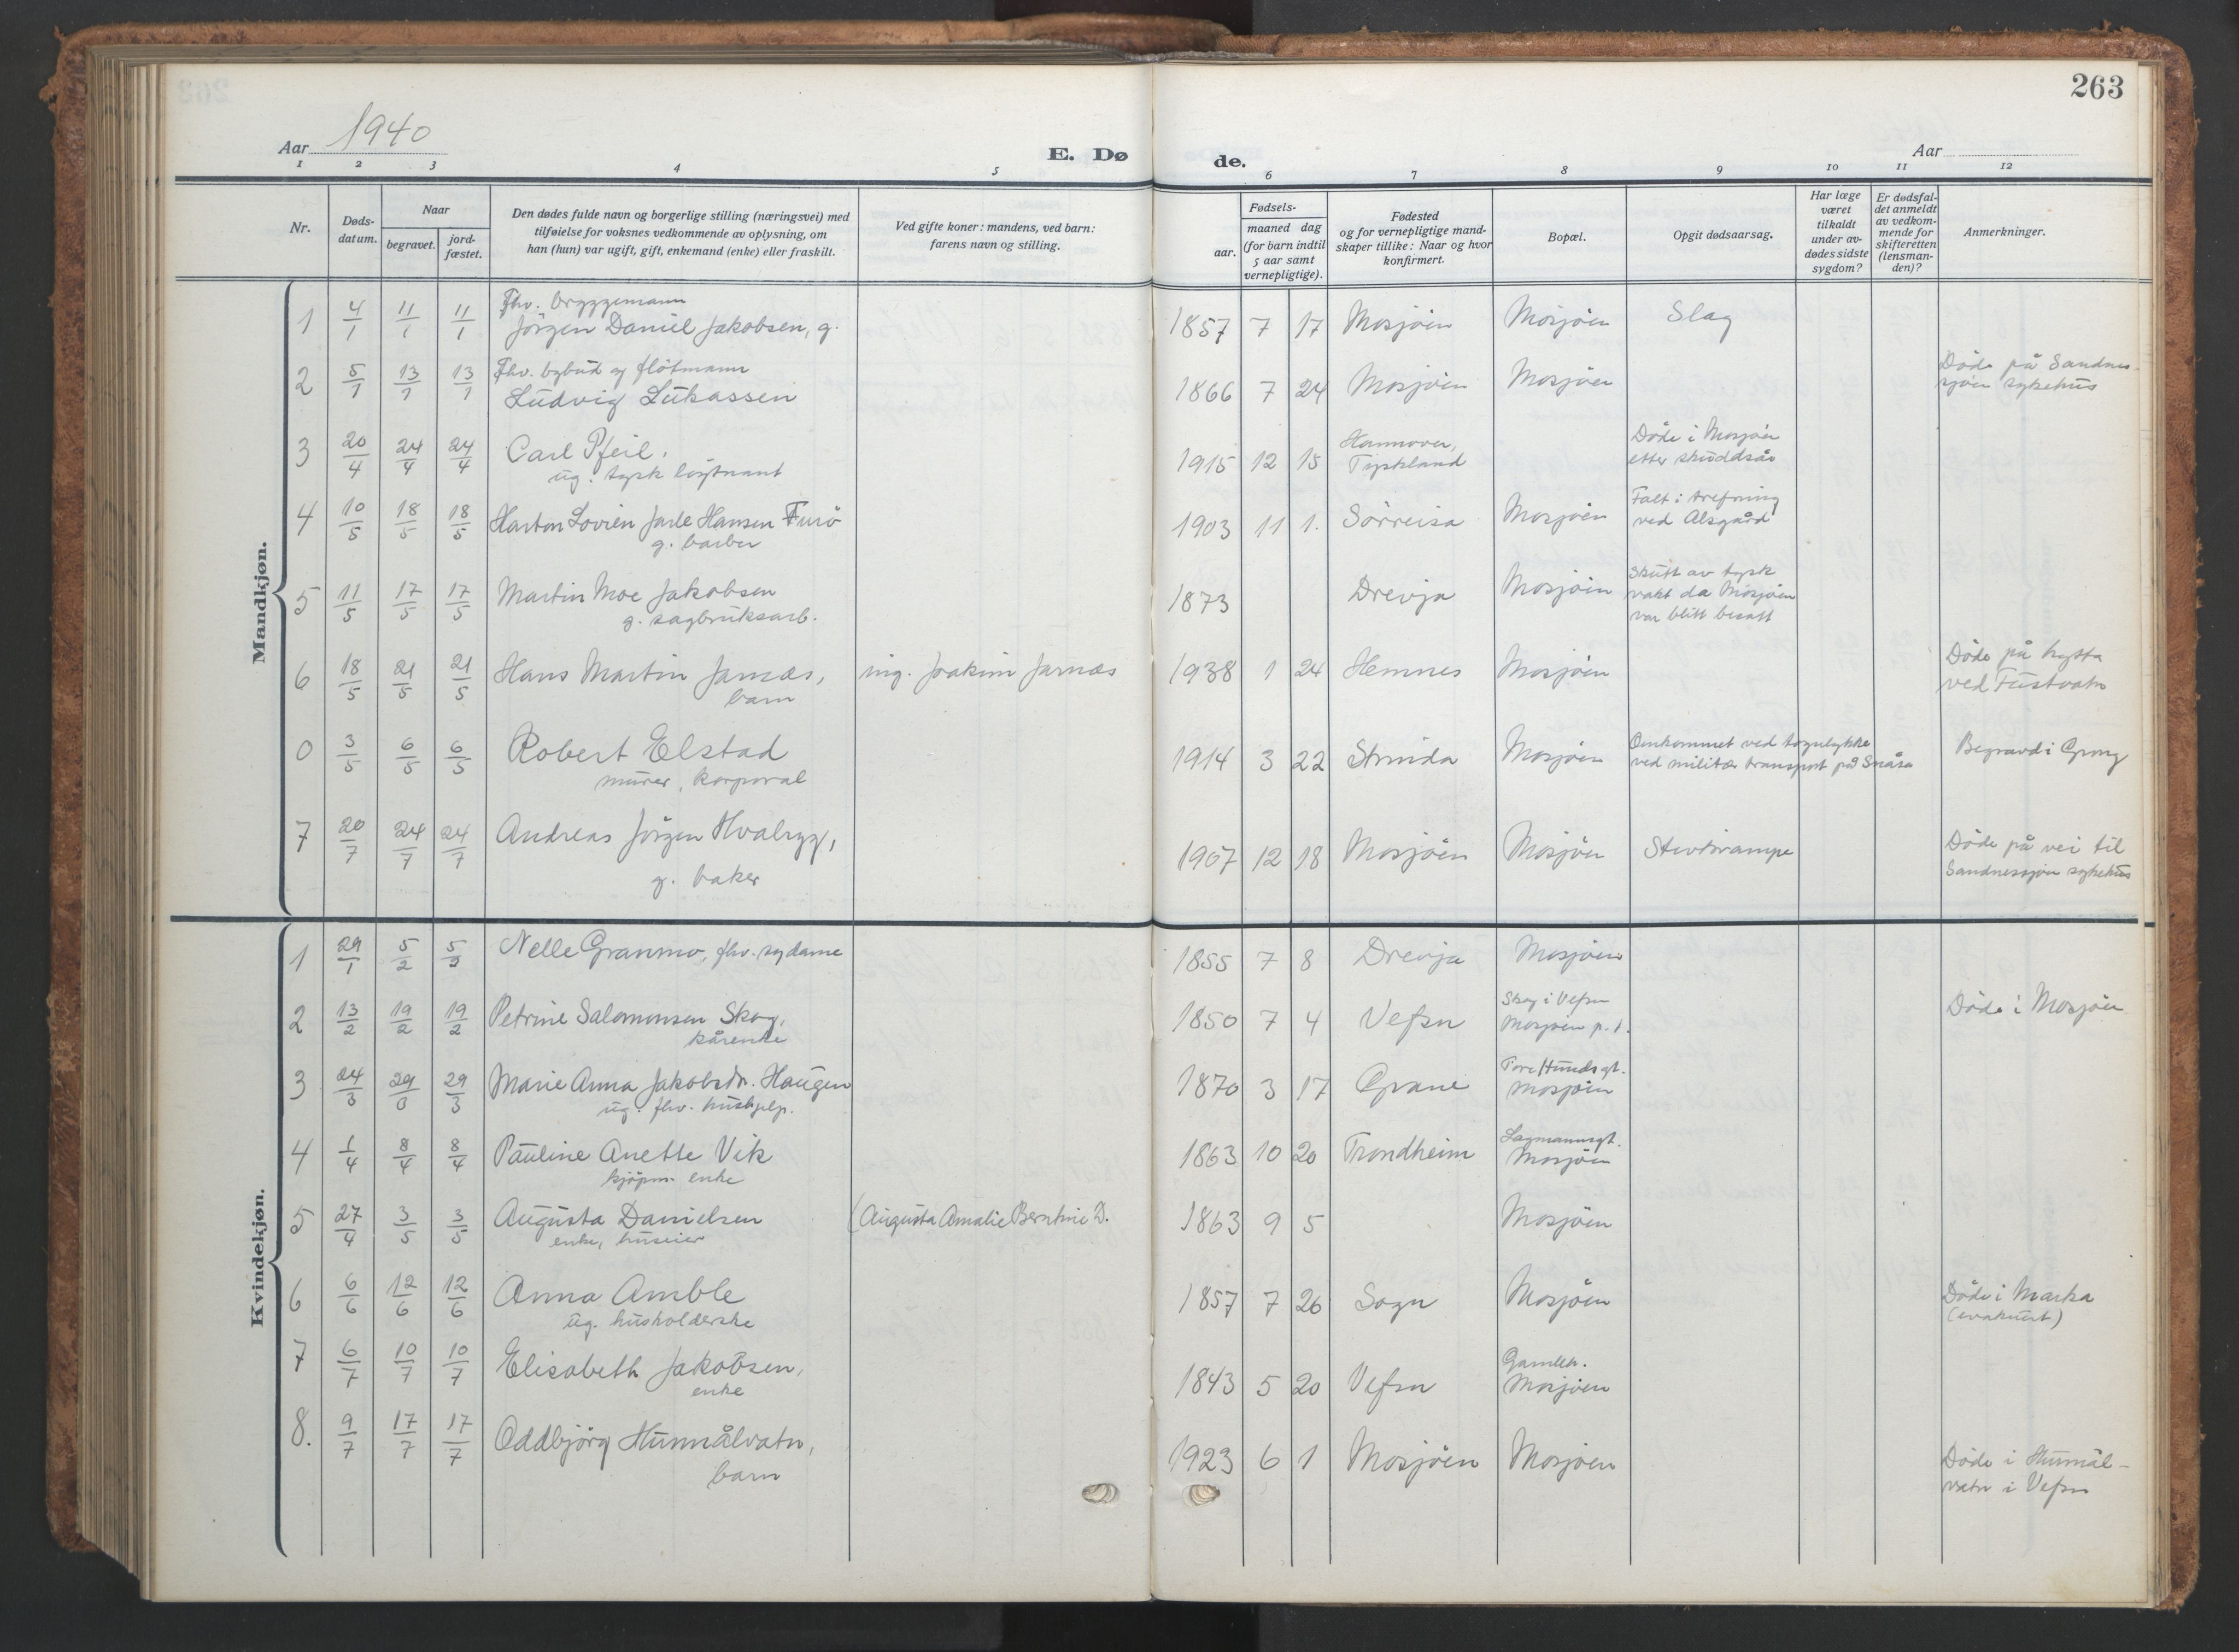 263
Aar 1940
E. Dø de.
Aar
1 2 3 4 5 6 7 8 9 10 11 12
Nr.
Døds-
datum.
Naar
begravet.
jord-
fæstet.
Den dødes fulde navn og borgerlige stilling (næringsvei) med
tilføielse for voksnes vedkommende av oplysning, om
han (hun) var ugift, gift, enkemand (enke) eller fraskilt.
Ved gifte koner: mandens, ved barn:
farens navn og stilling.
Fødsels-
aar.
maaned dag
(for barn indtil
5 aar samt
vernepligtige).
Fødested
og for vernepligtige mand-
skaper tillike: Naar og hvor
konfirmert.
Bopæl.
Opgit dødsaarsag.
Har læge
været
tilkaldt
under av-
dødes sidste
sygdom?
Er dødsfal-
det anmeldt
av vedkom-
mende for
skifteretten
(lensman-
den)?
Anmerkninger.
Mandkjøn.
Fhv. bryggemann
1 4/1 11/1 11/1 Jörgen Daniel Jakobsen, g. 1857 7 17 Mosjöen Mosjöen Slag
Fhv. bybud og flötmann
2 5/1 13/1 13/1 Ludvig Lukassen 1866 7 24 Mosjöen Mosjöen Döde på Sandnes-
sjöen sykehus
3 20/4 24/4 24/4 Carl Pfeil, 1915 12 15 Hannover, Döde i Mosjöen
ug. tysk löytnant Tyskland etter skuddsår
4 10/5 18/5 18/5 Harton Lovien Jarle Hansen Furö 1903 11 1. Sörreisa Mosjöen Falt i trefning
g. barber ved Alsgård
5 11/5 17/5 17/5 Martin Moe Jakobsen 1873 Drevja Mosjöen Skutt av tysk
g. sagbruksarb. vakt da Mosjöen
var blitt besatt
6 18/5 21/5 21/5 Hans Martin Jarnæs, ing. Joakim Jarnæs 1938 1 24 Hemnes Mosjöen Döde på hytta
barn ved Fustvatn
0 3/5 6/5 6/5 Robert Elstad 1914 3 22 Strinda Mosjöen Omkommet ved togulykke Begravd i Grong
murer, korporal ved militær transport på Snåsa
7 20/7 24/7 24/7 Andreas Jörgen Hvalryg, 1907 12 18 Mosjöen Mosjöen Stivkrampe Döde på vei til
g. baker Sandnessjöen sykehus
Kvindekjøn.
1 29/1 5/2 5/2 Nelle Granmo, fhv. sydame 1855 7 8 Drevja Mosjöen
2 13/2 19/2 19/2 Petrine Salomonsen Skog, 1850 7 4 Vefsn Skog i Vefsn Döde i Mosjöen
kårenke Mosjöen p.t.
3 24/3 29/3 29/3 Marie Anna Jakobsdr. Haugen 1870 3 17 Grane Tore Hundsgt.
ug. fhv. hushjelp. Mosjöen
4 1/4 8/4 8/4 Pauline Anette Vik 1863 10 20 Trondheim Lagmannsgt.
kjöpm. enke Mosjöen
5 27/4 3/5 3/5 Augusta Danielsen (Augusta Amalie Berntine D. 1863 9 5 Mosjöen
enke, huseier
6 6/6 12/6 12/6 Anna Amble 1857 7 26 Sogn Mosjöen Döde i Marka
ug. husholderske (evakuert)
7 6/7 10/7 10/7 Elisabeth Jakobsen, 1843 5 20 Vefsn Gamleh.
enke Mosjöen
8. 9/7 17/7 17/7 Oddbjörg Hunnålvatn, 1923 6 1 Mosjöen Mosjöen Döde i Hunnål-
barn vatn i Vefsn